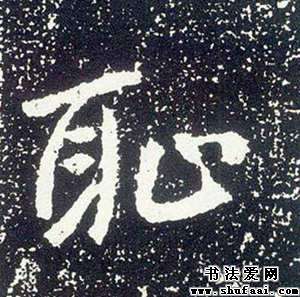 恥
书法爱网
www.shufaai.com